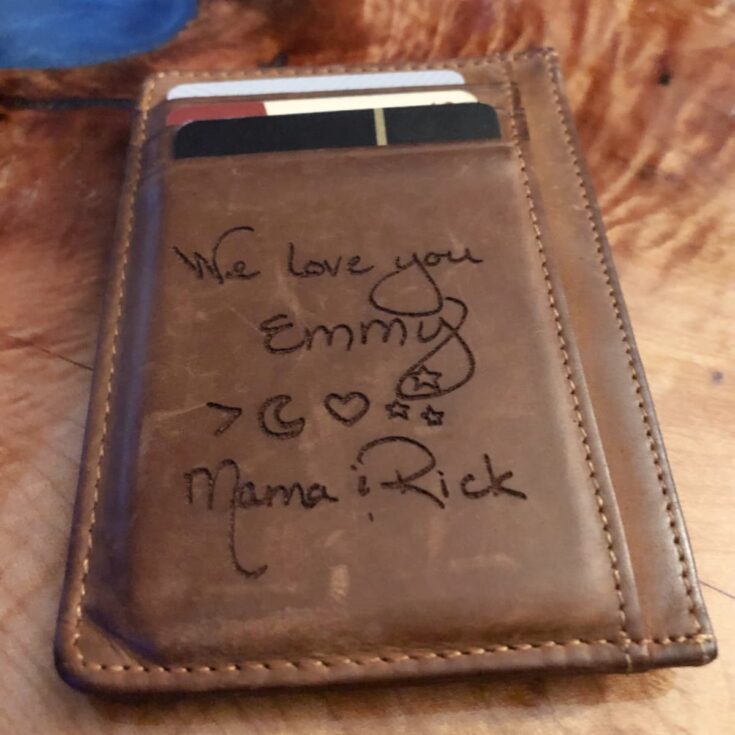 We love you
Emmy
> ☾ ♡ ☆☆☆
Mama & Rick